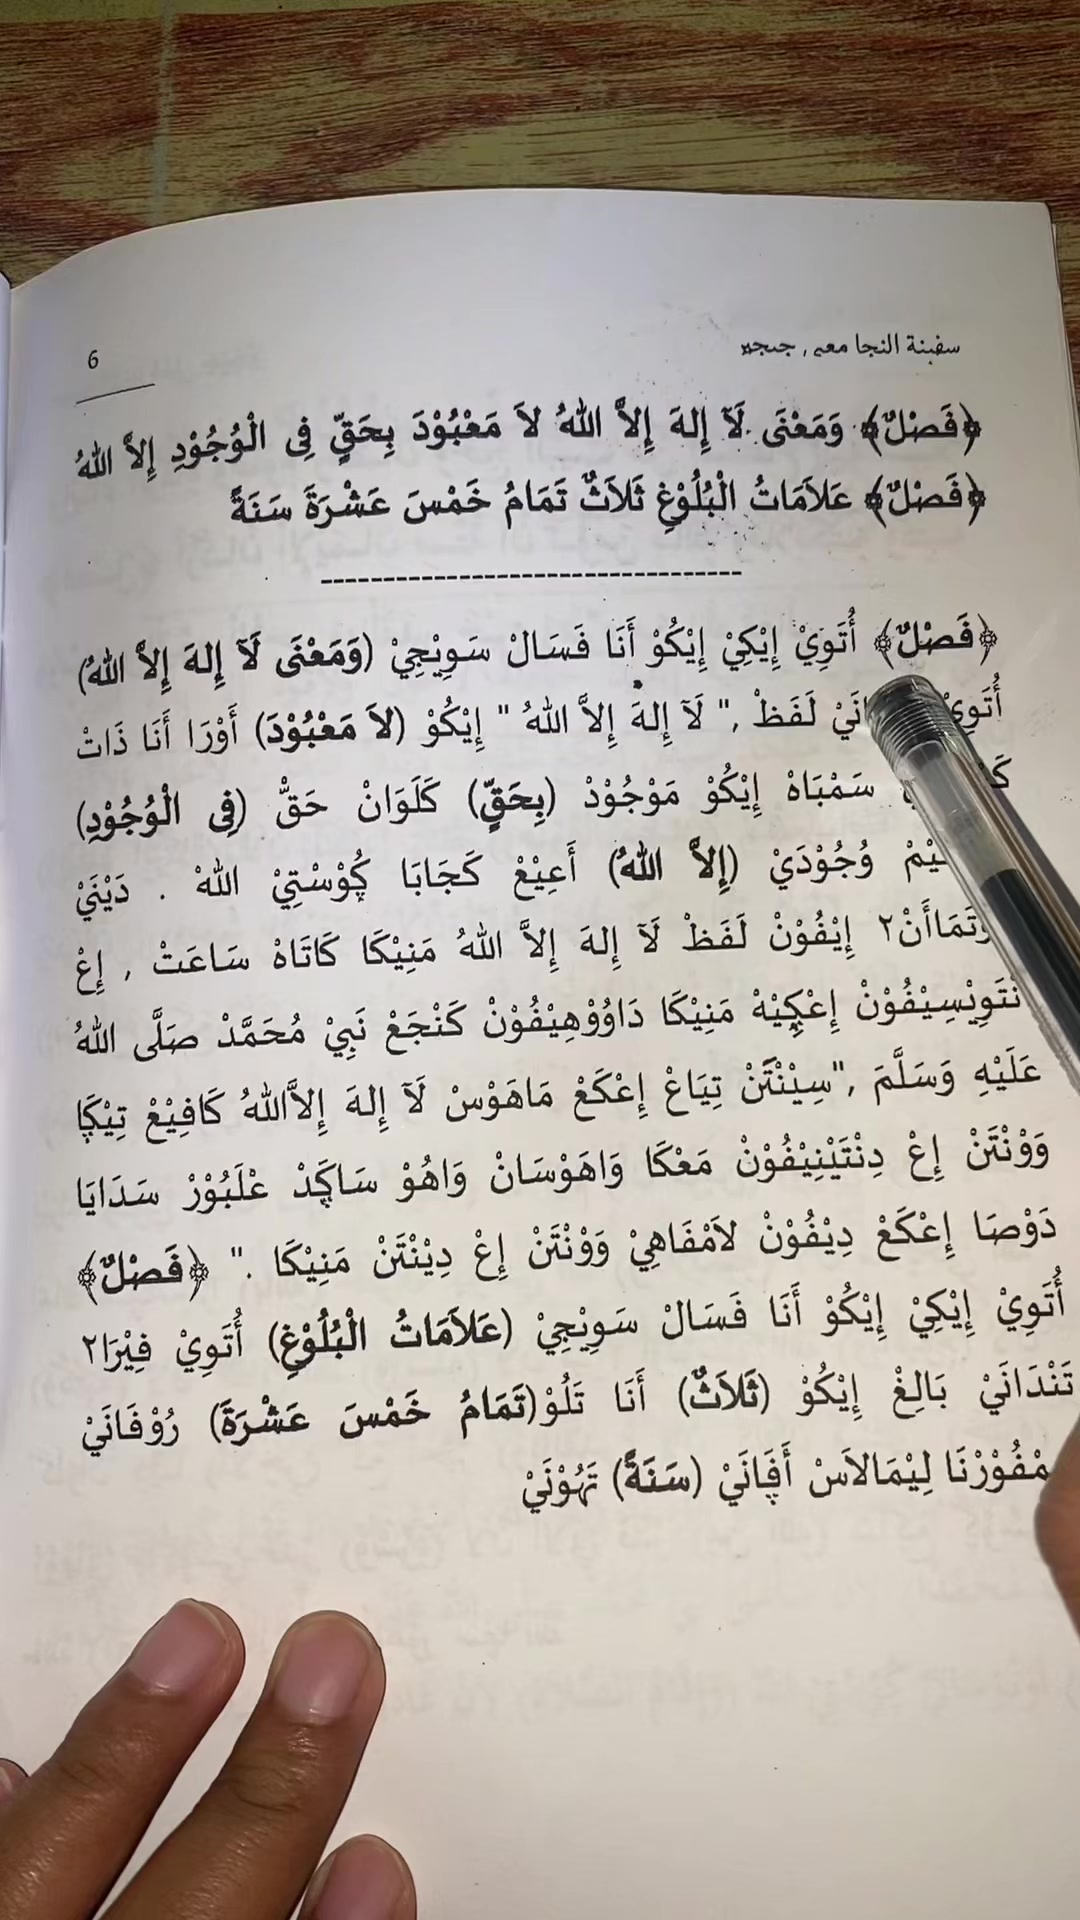 سفينة النجا معنى جنجير
6
﴿فَصْلٌ﴾ وَمَعْنَى لَآ إِلهَ إِلاَّ اللهُ لاَ مَعْبُوْدَ بِحَقٍّ فِى الْوُجُوْدِ إِلاَّ اللهُ
﴿فَصْلٌ﴾ عَلاَمَاتُ الْبُلُوْغِ ثَلاَثٌ تَمَامُ خَمْسَ عَشْرَةَ سَنَةً
﴿فَصْلٌ﴾ أُتَوِيْ إِيْكِيْ إِيْكُوْ أَنَا فَسَالْ سَوِيْجِيْ (وَمَعْنَى لَآ إِلهَ إِلاَّ اللهُ)
أُتَوِيْ لَفَظْ ," لَآ إِلهَ إِلاَّ اللهُ " إِيْكُوْ (لاَ مَعْبُوْدَ) أَوْرَا أَنَا ذَاتْ
سَمْبَاهْ إِيْكُوْ مَوْجُوْدْ (بِحَقٍّ) كَلَوَانْ حَقٌّ (فِى الْوُجُوْدِ)
وُجُوْدَيْ (إِلاَّ اللهُ) أَعِيْعْ كَجَابَا ڮُوْسْتِيْ اللهْ . دَيْنَيْ
إِيْفُوْنْ لَفَظْ لَآ إِلهَ إِلاَّ اللهُ مَنِيْكَا كَاتَاهْ سَاعَتْ , إِعْ
إِعْڮِيْهْ مَنِيْكَا دَاوُوْهِيْفُوْنْ كَنْجَعْ نَبِيْ مُحَمَّدْ صَلَّى اللهُ
عَلَيْهِ وَسَلَّمَ ,"سِيْنْتَنْ تِيَاعْ إِعْكَعْ مَاهَوْسْ لَآ إِلهَ إِلاَّاللهُ كَافِيْعْ تِيْڮَا
وَوْنْتَنْ إِعْ دِنْتَيْنِيْفُوْنْ مَعْكَا وَاهَوْسَانْ وَاهُوْ سَاڮَدْ عْلَبُوْرْ سَدَايَا
دَوْصَا إِعْكَعْ دِيْفُوْنْ لاَمْفَاهِيْ وَوْنْتَنْ إِعْ دِيْنْتَنْ مَنِيْكَا ." ﴿فَصْلٌ﴾
أُتَوِيْ إِيْكِيْ إِيْكُوْ أَنَا فَسَالْ سَوِيْجِيْ (عَلاَمَاتُ الْبُلُوْغِ) أُتَوِيْ فِيْرَا٢
تَنْدَانَيْ بَالِغْ إِيْكُوْ (ثَلاَثٌ) أَنَا تَلُوْ(تَمَامُ خَمْسَ عَشْرَةَ) رُوْفَانَيْ
لِيْمَالاَسْ أَڤَانَيْ (سَنَةً) تَهُوْنَيْ